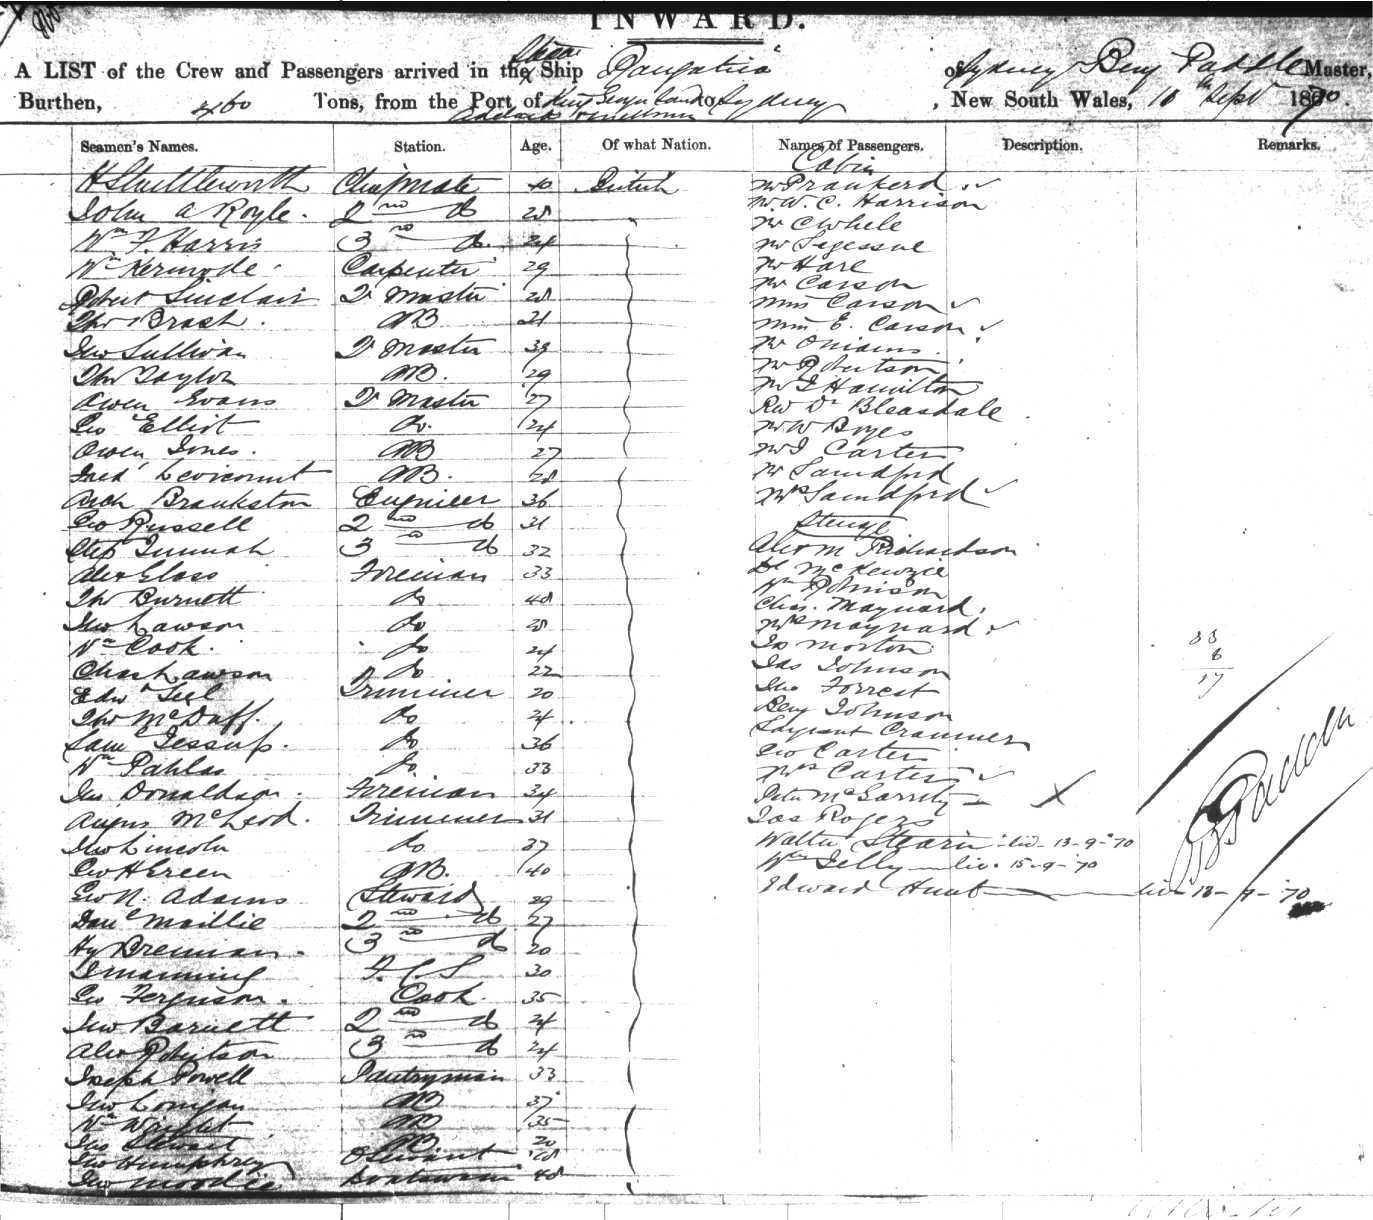 INWARD.
A LIST of the Crew and Passengers arrived in the Ship Rangatira of Sydney Benj Paddle Master,
Burthen, 460 Tons, from the Port of King Georges Sound to Sydney, New South Wales, 10th Sept 1870.
Adelaide Melbourne
Seamen's Names. Station. Age. Of what Nation. Names of Passengers. Description. Remarks.
H Shuttleworth Chief Mate 40 British
John A Royle. 2nd do 28
Wm F. Harris 3rd do. 24
Wm Kermode Carpenter 29
Robert Sinclair Qr Master 28
Thos Brash. AB 21
Jno Sullivan Qr Master 39
Thos Taylor AB. 29
Owen Evans Qr Master 27
Geo Elliot do. 24
Owen Jones. AB 27
Fred Levicount AB. 28
Arch Brankston Engineer 36
Geo Russell 2nd do 31
3rd do 32
Alex Glass Fireman 33
Thos Burnett do 48
Jno Lawson do 28
Wm Cook. do 24
Chas Lawson do 22
Edwd Teel Trimmer 20
Thos McDuff. do 24
Saml Jessup. do 36
Wm Pahlas do. 33
Jno Donaldson. Fireman 34
Angus McLeod. Trimmer 31
Jno Lincoln do 37
Geo H Green AB. 40
Geo N. Adams Steward 29
Danl Maillie 2nd do 27
Hy Brennan. 3rd do 20
J Manning F. C. S 30
Geo Ferguson. Cook. 35
Jno Barnett 2nd do 24
Alex Robertson 3rd do 24
Joseph Powell Pantryman 33
Jno Lonigan AB 37
Wm Wright AB 35
Jno Stewart AB. 20
Jno Humphrey Servant 28
Jno Moodie Boatswain 48
Cabin
Mr Prankerd
Mr W. C. Harrison
Mr C Whele
Mr Segessue
Mr Hare
Mr Carson
Miss Carson
Miss E. Carson
Mr Onians
Mr Robertson
Mr J Hamilton
Rev Dr Bleasdale
Mr W Boyes
Mr J Carter
Mr Sandford
Mrs Sandford
Steerage
Alex M Richardson
Dl McKenzie
Wm Robinson
Chas. Maynard.
Mrs Maynard
Jas Morton
Jas Johnson
Jno Forrest
Benj Johnson
Sargeant Crammer
Geo Carter
Mrs Carter
Peter McGarrity
Jas Rogers
Walter Stearin liv. 13-9-70
Wm Jelly liv. 15-9-70
Edward Hunt liv 13-9-70
33
6
17
B Paddle